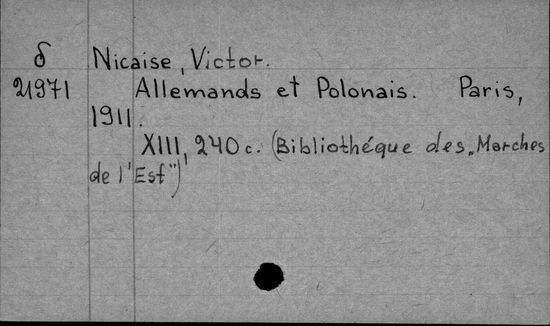 δ Nicaise, Victor.
21971 Allemands et Polonais. Paris,
1911.
XIII, 240 c. (Bibliothéque des „Marches
de l'Est")